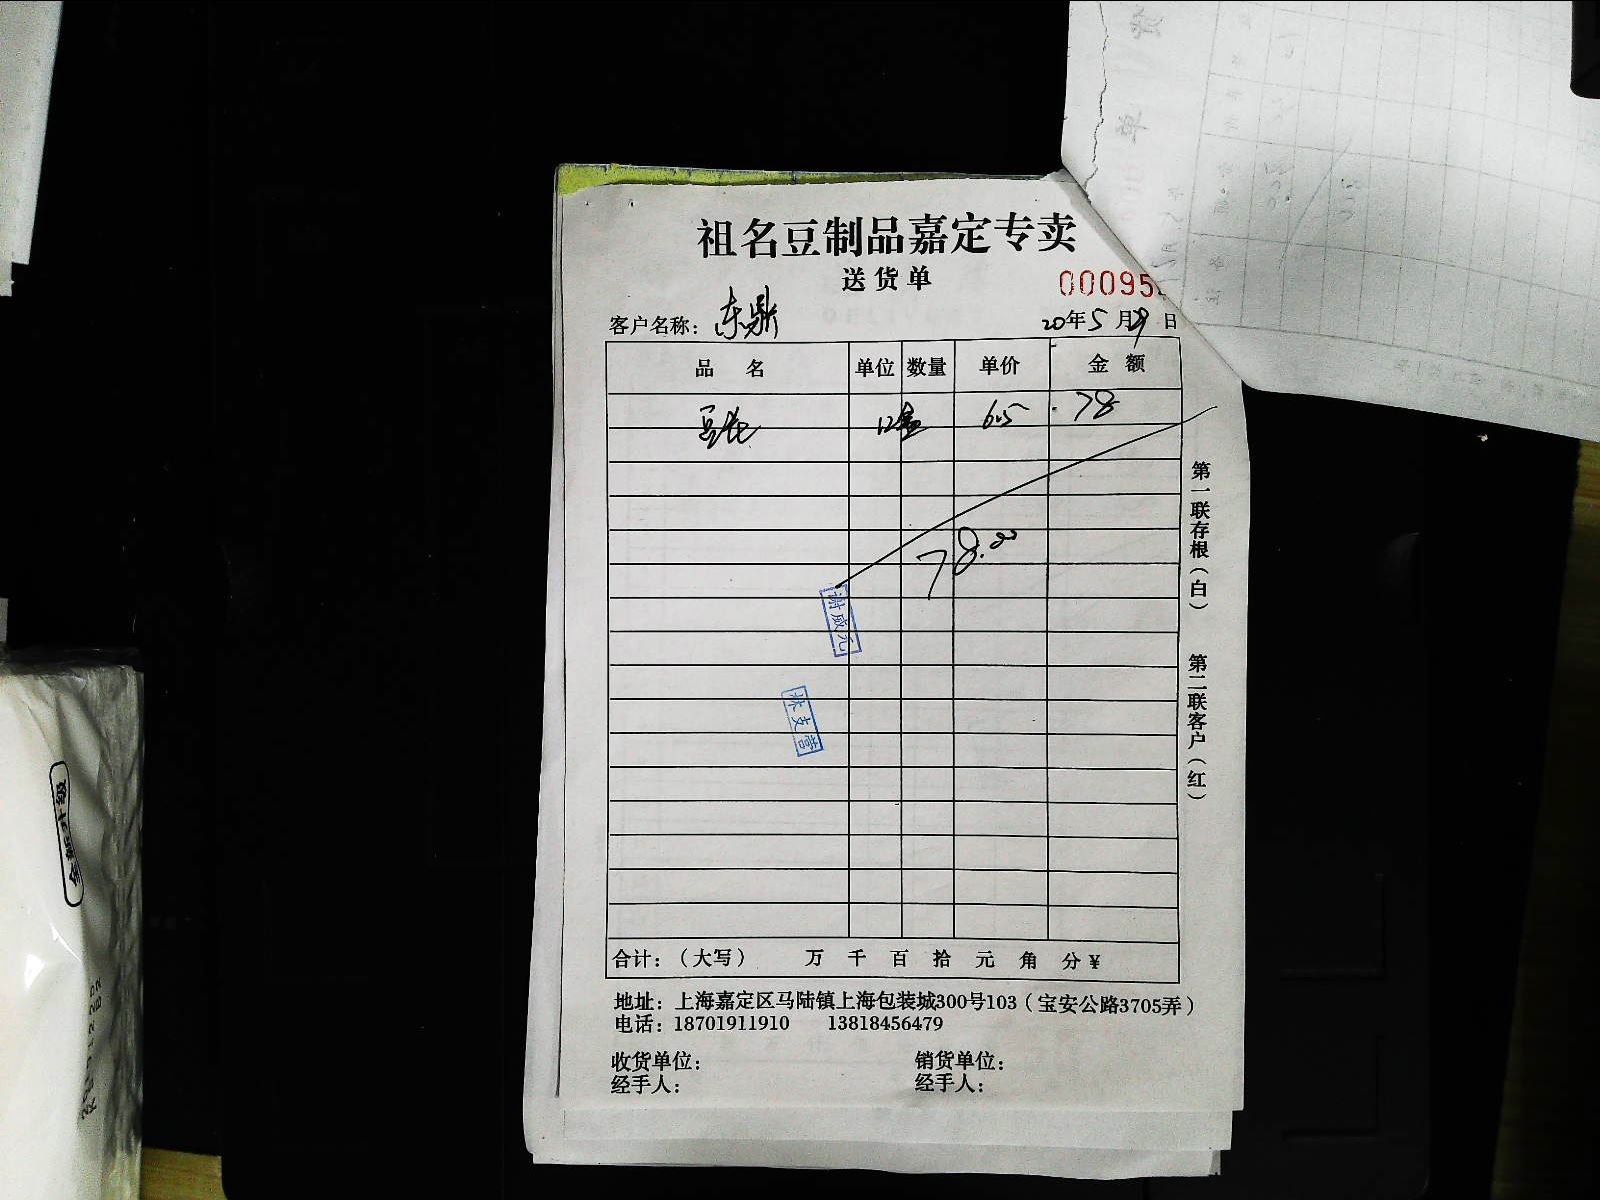 祖名豆制品嘉定专卖
送货单
00095
客户名称：东鼎
20年5月29日
品名 单位 数量 单价 金额
豆花 12盒 6.5 78
78.00
谢咸元
林支营
第一联存根（白） 第二联客户（红）
合计：（大写） 万 千 百 拾 元 角 分 ¥
地址：上海嘉定区马陆镇上海包装城300号103（宝安公路3705弄）
电话：18701911910 13818456479
收货单位： 销货单位：
经手人： 经手人：
全新升级